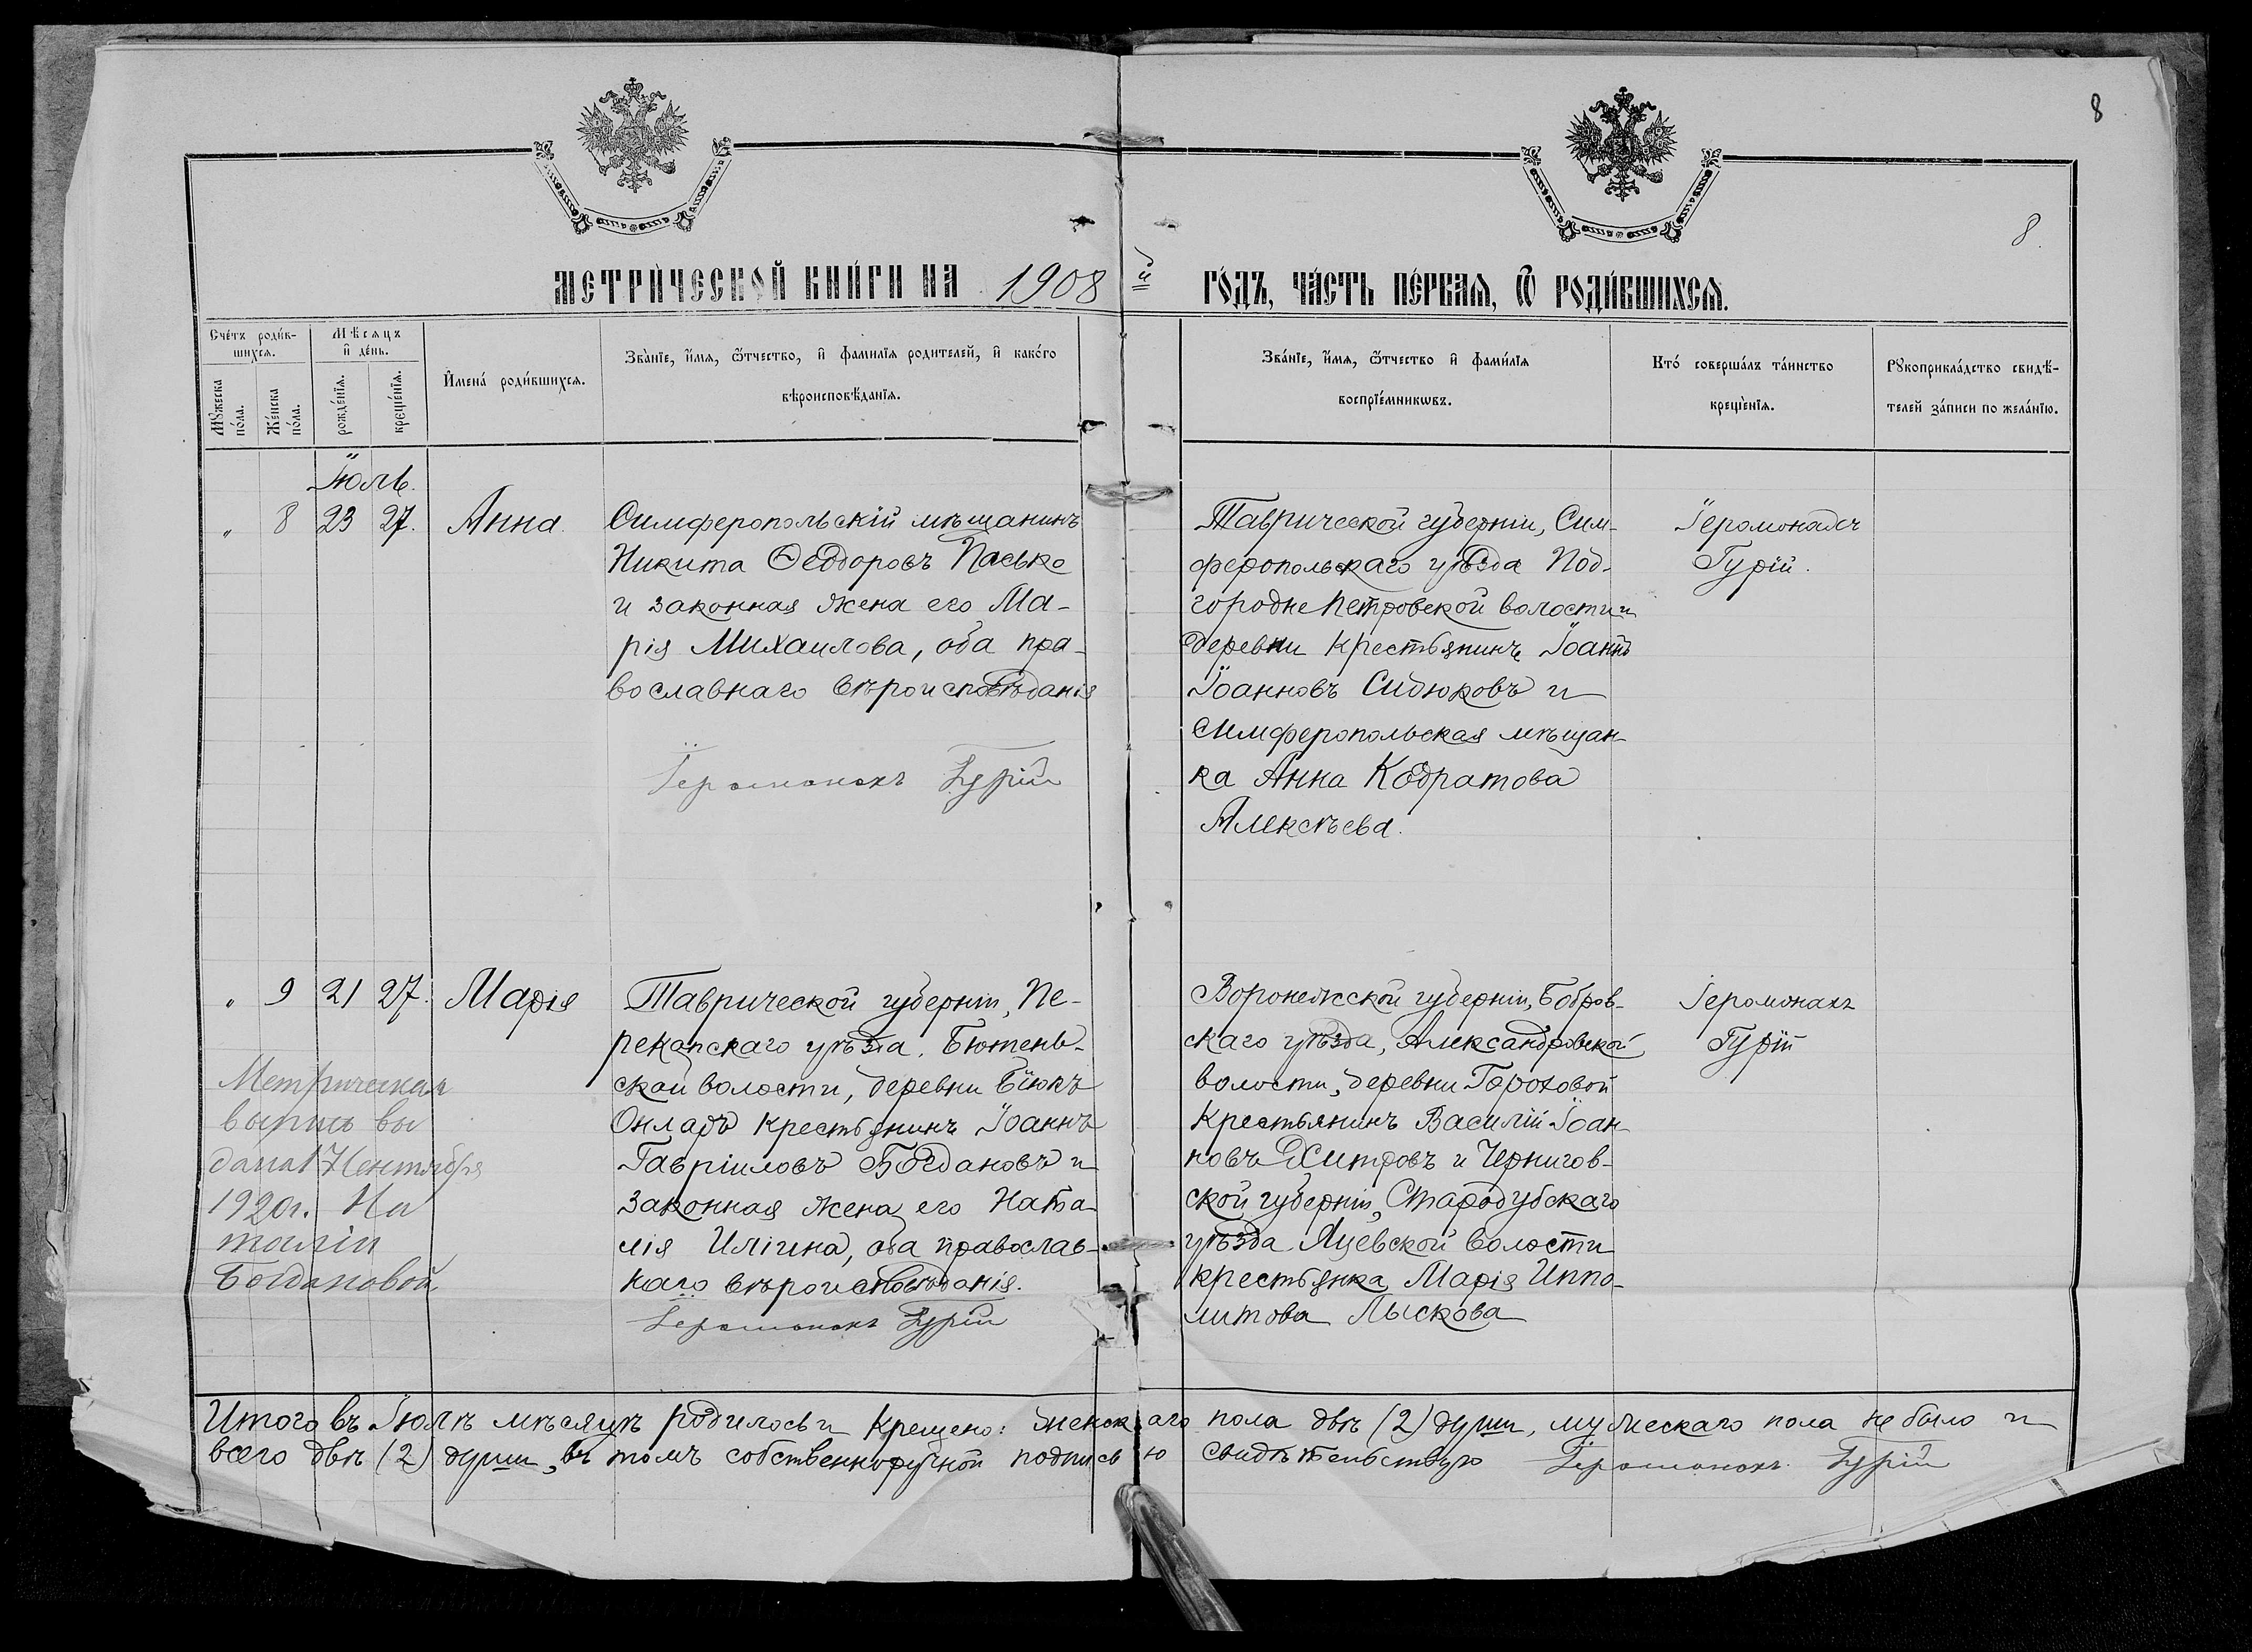 8
8.
МЕТРИ́ЧЕСКОЙ КНИ́ГИ НА 1908 й ГО́ДЪ, ЧА́СТЬ ПЕ́РВАЯ, Ѿ РОДИ́ВШИХСЯ.
Сче́тъ роди́в-
шихся.
Мꙋжеска по́ла.
Же́нска по́ла.
Мѣ́сяцъ и де́нь.
рожде́нїя.
креще́нїя.
Имена́ роди́вшихся.
Зва́нїе, и́мя, ѻ́тчество, и фами́лїя родителей, и како́го
вѣроисповѣ́данїя.
Зва́нїе, и́мя, ѻ́тчество и фами́лїя
воспрїе́мникѡвъ.
Кто́ соверша́лъ та́инство
креще́нїя.
Рꙋкоприкла́дство свидѣ́-
телей за́писи по жела́нїю.
Іюль.
" 8 23 27. Анна.
Симферопольскій мѣщанинъ
Никита Ѳеодоровъ Пасько
и законная жена его Ма-
рія Михаилова, оба пра-
вославнаго вѣроисповѣданія
Іеромонахъ Гурій
Таврической губерніи, Сим-
феропольскаго уѣзда Под-
городне Петровской волости и
деревни крестьянинъ Іоаннъ
Іоанновъ Сидюковъ и
симферопольская мѣщан-
ка Анна Кодратова
Алексѣева.
Іеромонахъ
Гурій.
" 9 21 27. Марія
Таврической губерніи, Пе-
рекопскаго уѣзда, Бютень-
ской волости, деревни Біюкъ
Онларъ крестьянинъ Іоаннъ
Гавріиловъ Богдановъ и
законная жена его Ната-
лія Иліина, оба православ-
наго вѣроисповѣданія.
Іеромонахъ Гурій
Метрическая
выпись вы
дана 17 Сентября
1920г. На
таліи
Богдановой
Воронежской губерніи, Бобров-
скаго уѣзда, Александровской
волости, деревни Гороховой
крестьянинъ Василій Іоан
новъ Хитровъ и Чернигов-
ской губерніи, Стародубскаго
уѣзда Яцевской волости
крестьянка Марія Иппо-
литова Лыскова
Іеромонахъ
Гурій
Итого въ Іюлѣ мѣсяцѣ родилось и крещено: женскаго пола двѣ (2) души, мужескаго пола не было и
всего двѣ (2) души, въ томъ собственноручной подписью свидѣтельствую Іеромонахъ Гурій